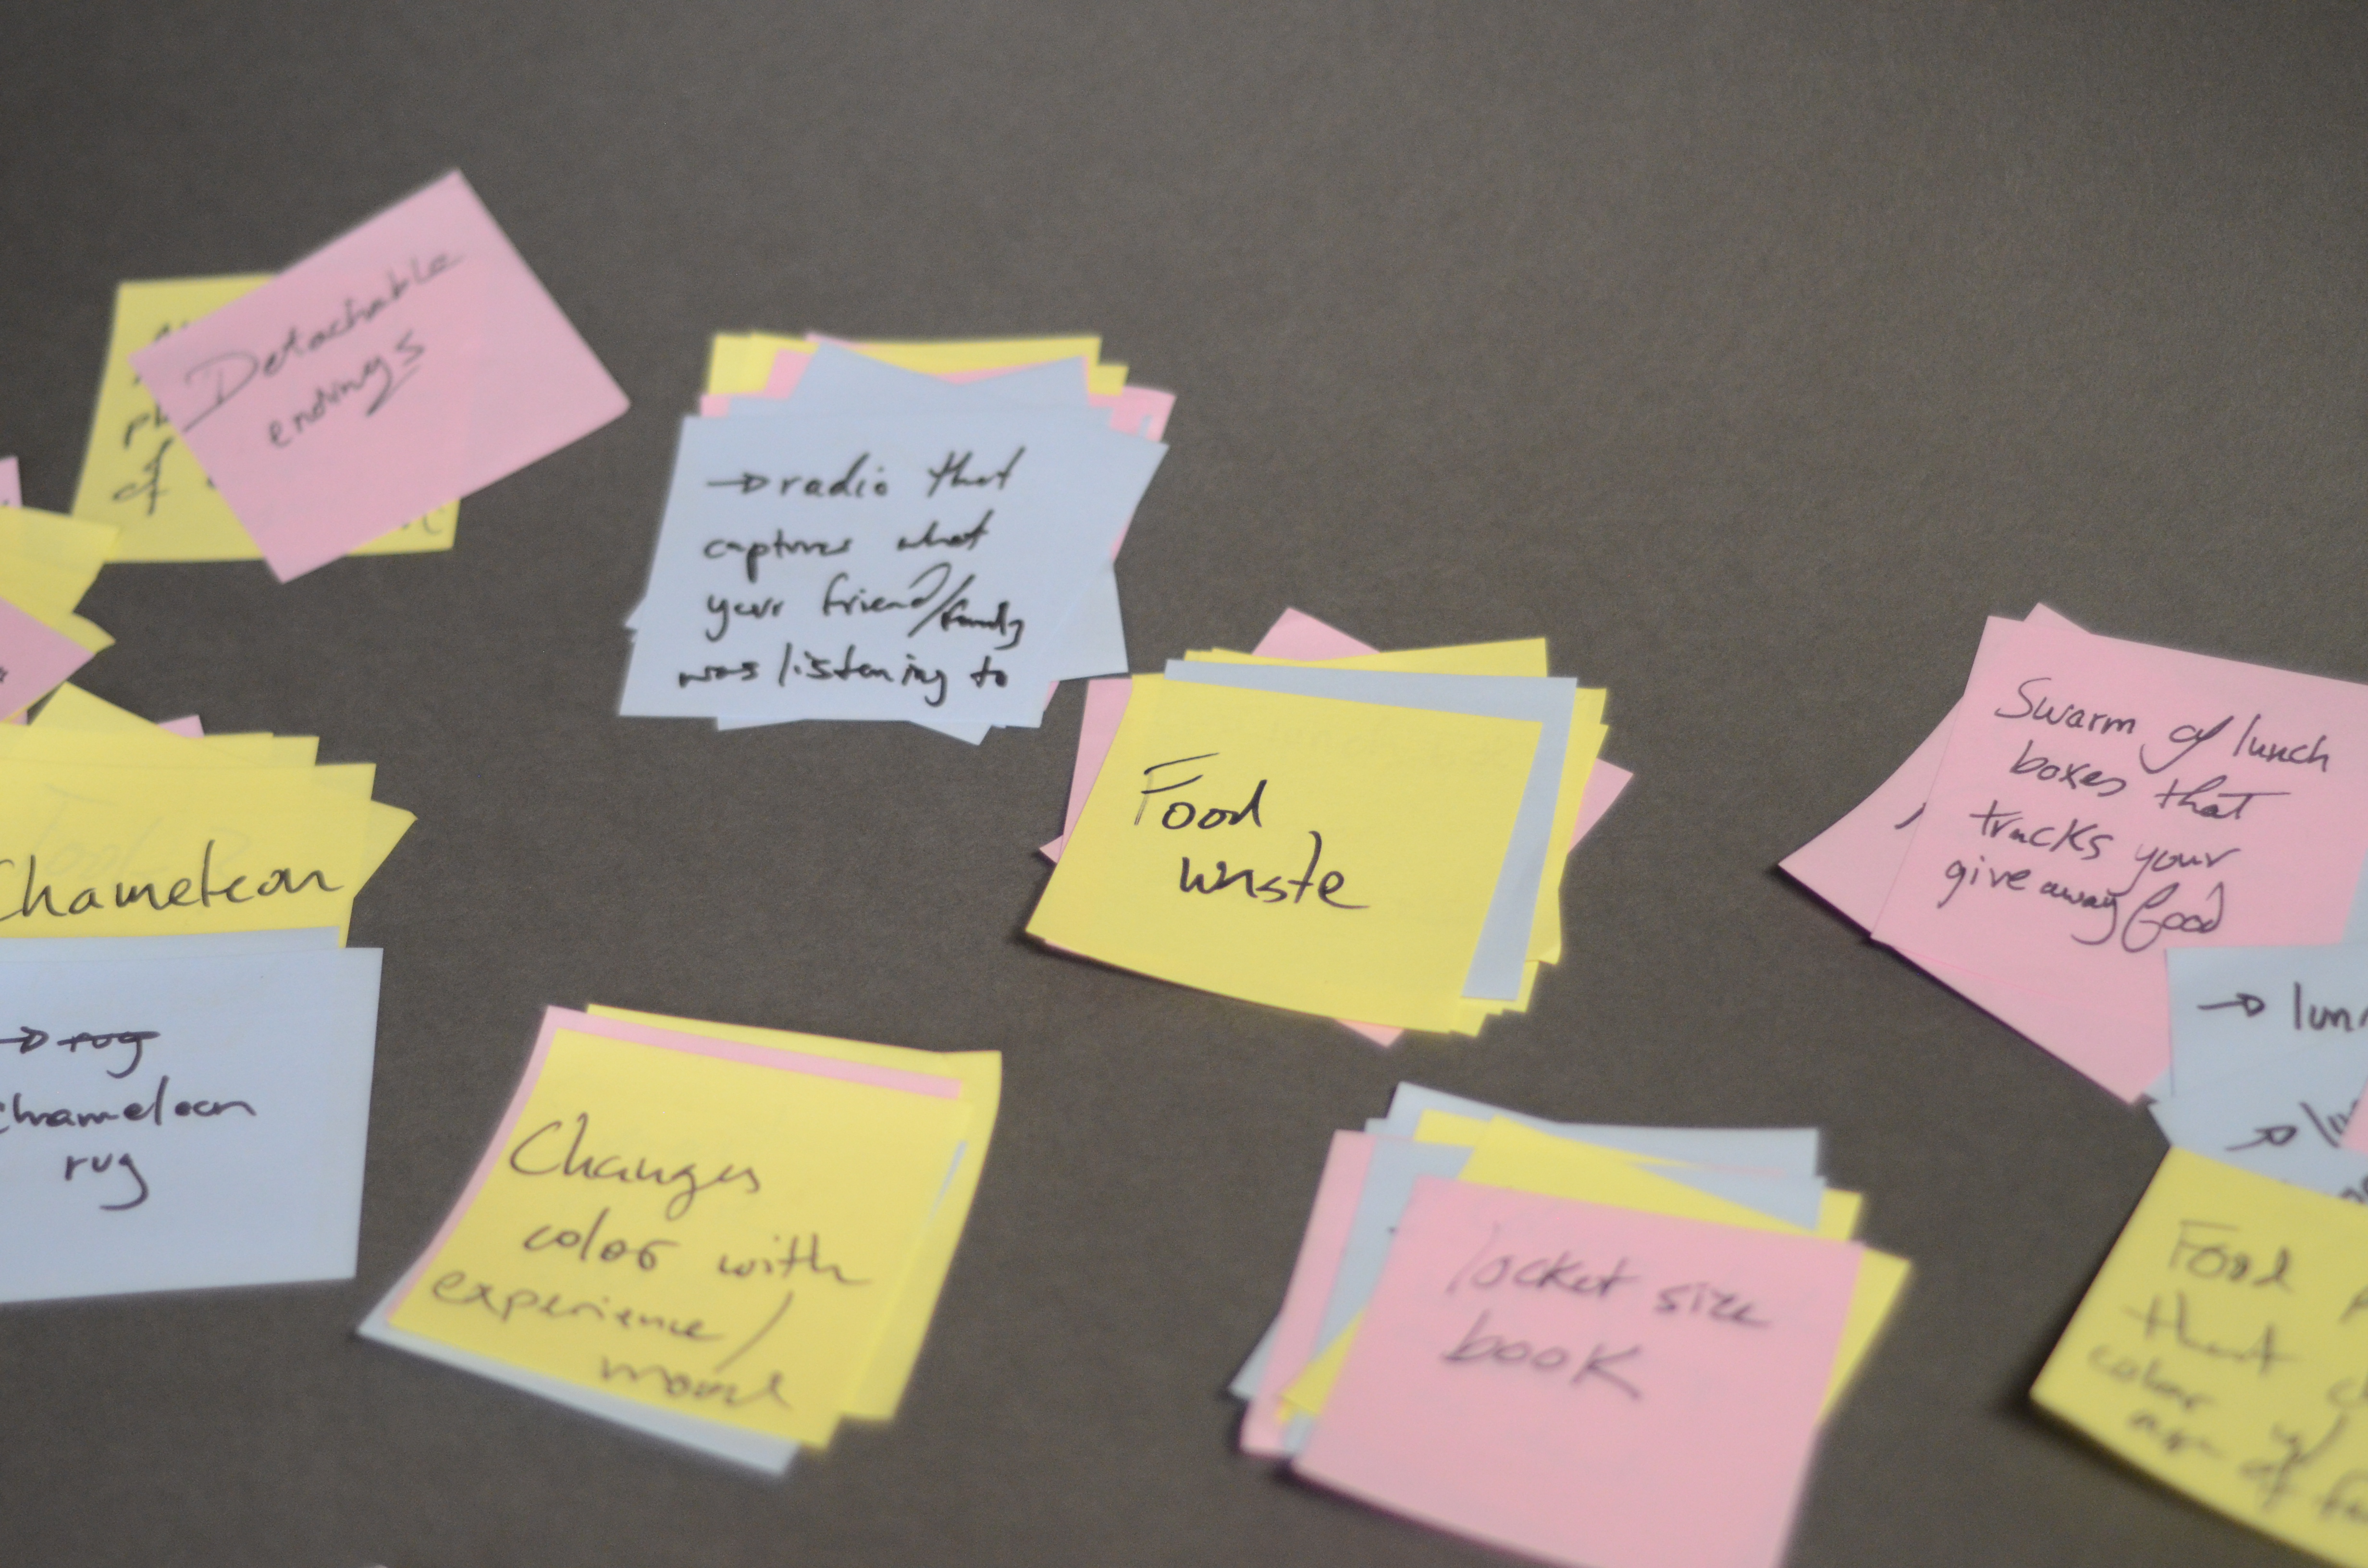 Detachable
endings
of
→ radio that
captures what
your friend/family
was listening to
Food
waste
Swarm of lunch
boxes that
tracks your
give away food
Chameleon
→ rug
chameleon
rug
Changes
color with
experience/
mood
locket size
book
→
→
Food
that
color